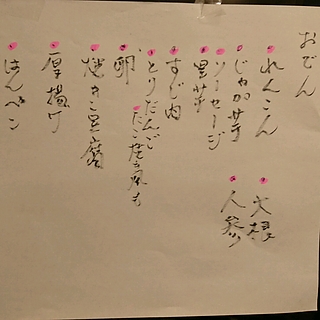 おでん
れんこん
大根
じゃがいも
人参
ソーセージ
里芋
すじ肉
とりだんご
たこ
卵
焼き豆腐
厚揚げ
はんぺん